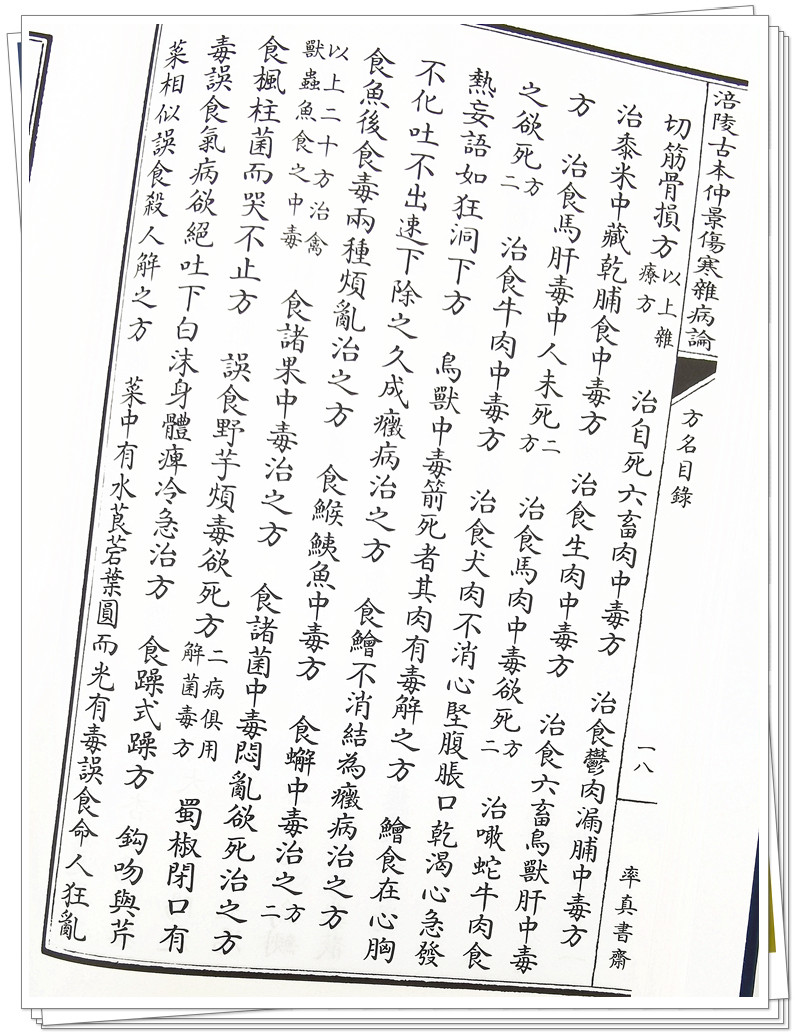 涪陵古本仲景傷寒雜病論
方名目錄
一八
率真書齋
切筋骨損方 以上雜療方 治自死六畜肉中毒方 治食鬱肉漏脯中毒方
治黍米中藏乾脯食中毒方 治食生肉中毒方 治食六畜鳥獸肝中毒
方 治食馬肝毒中人未死方二 治食馬肉中毒欲死方二 治噉蛇牛肉食
之欲死方二 治食牛肉中毒方 治食犬肉不消心堅腹脹口乾渴心急發
熱妄語如狂洞下方 鳥獸中毒箭死者其肉有毒解之方 鱠食在心胸
不化吐不出速下除之久成癥病治之方 食鱠不消結為癥病治之方
食魚後食毒兩種煩亂治之方 食鯸鮧魚中毒方 食蠏中毒治之方二
以上二十方治禽獸蟲魚食之中毒 食諸果中毒治之方 食諸菌中毒悶亂欲死治之方
食楓柱菌而哭不止方 誤食野芋煩毒欲死方 二病俱用解菌毒方 蜀椒閉口有
毒誤食氣病欲絕吐下白沫身體痺冷急治方 食躁式躁方 鈎吻與芹
菜相似誤食殺人解之方 菜中有水茛菪葉圓而光有毒誤食命人狂亂